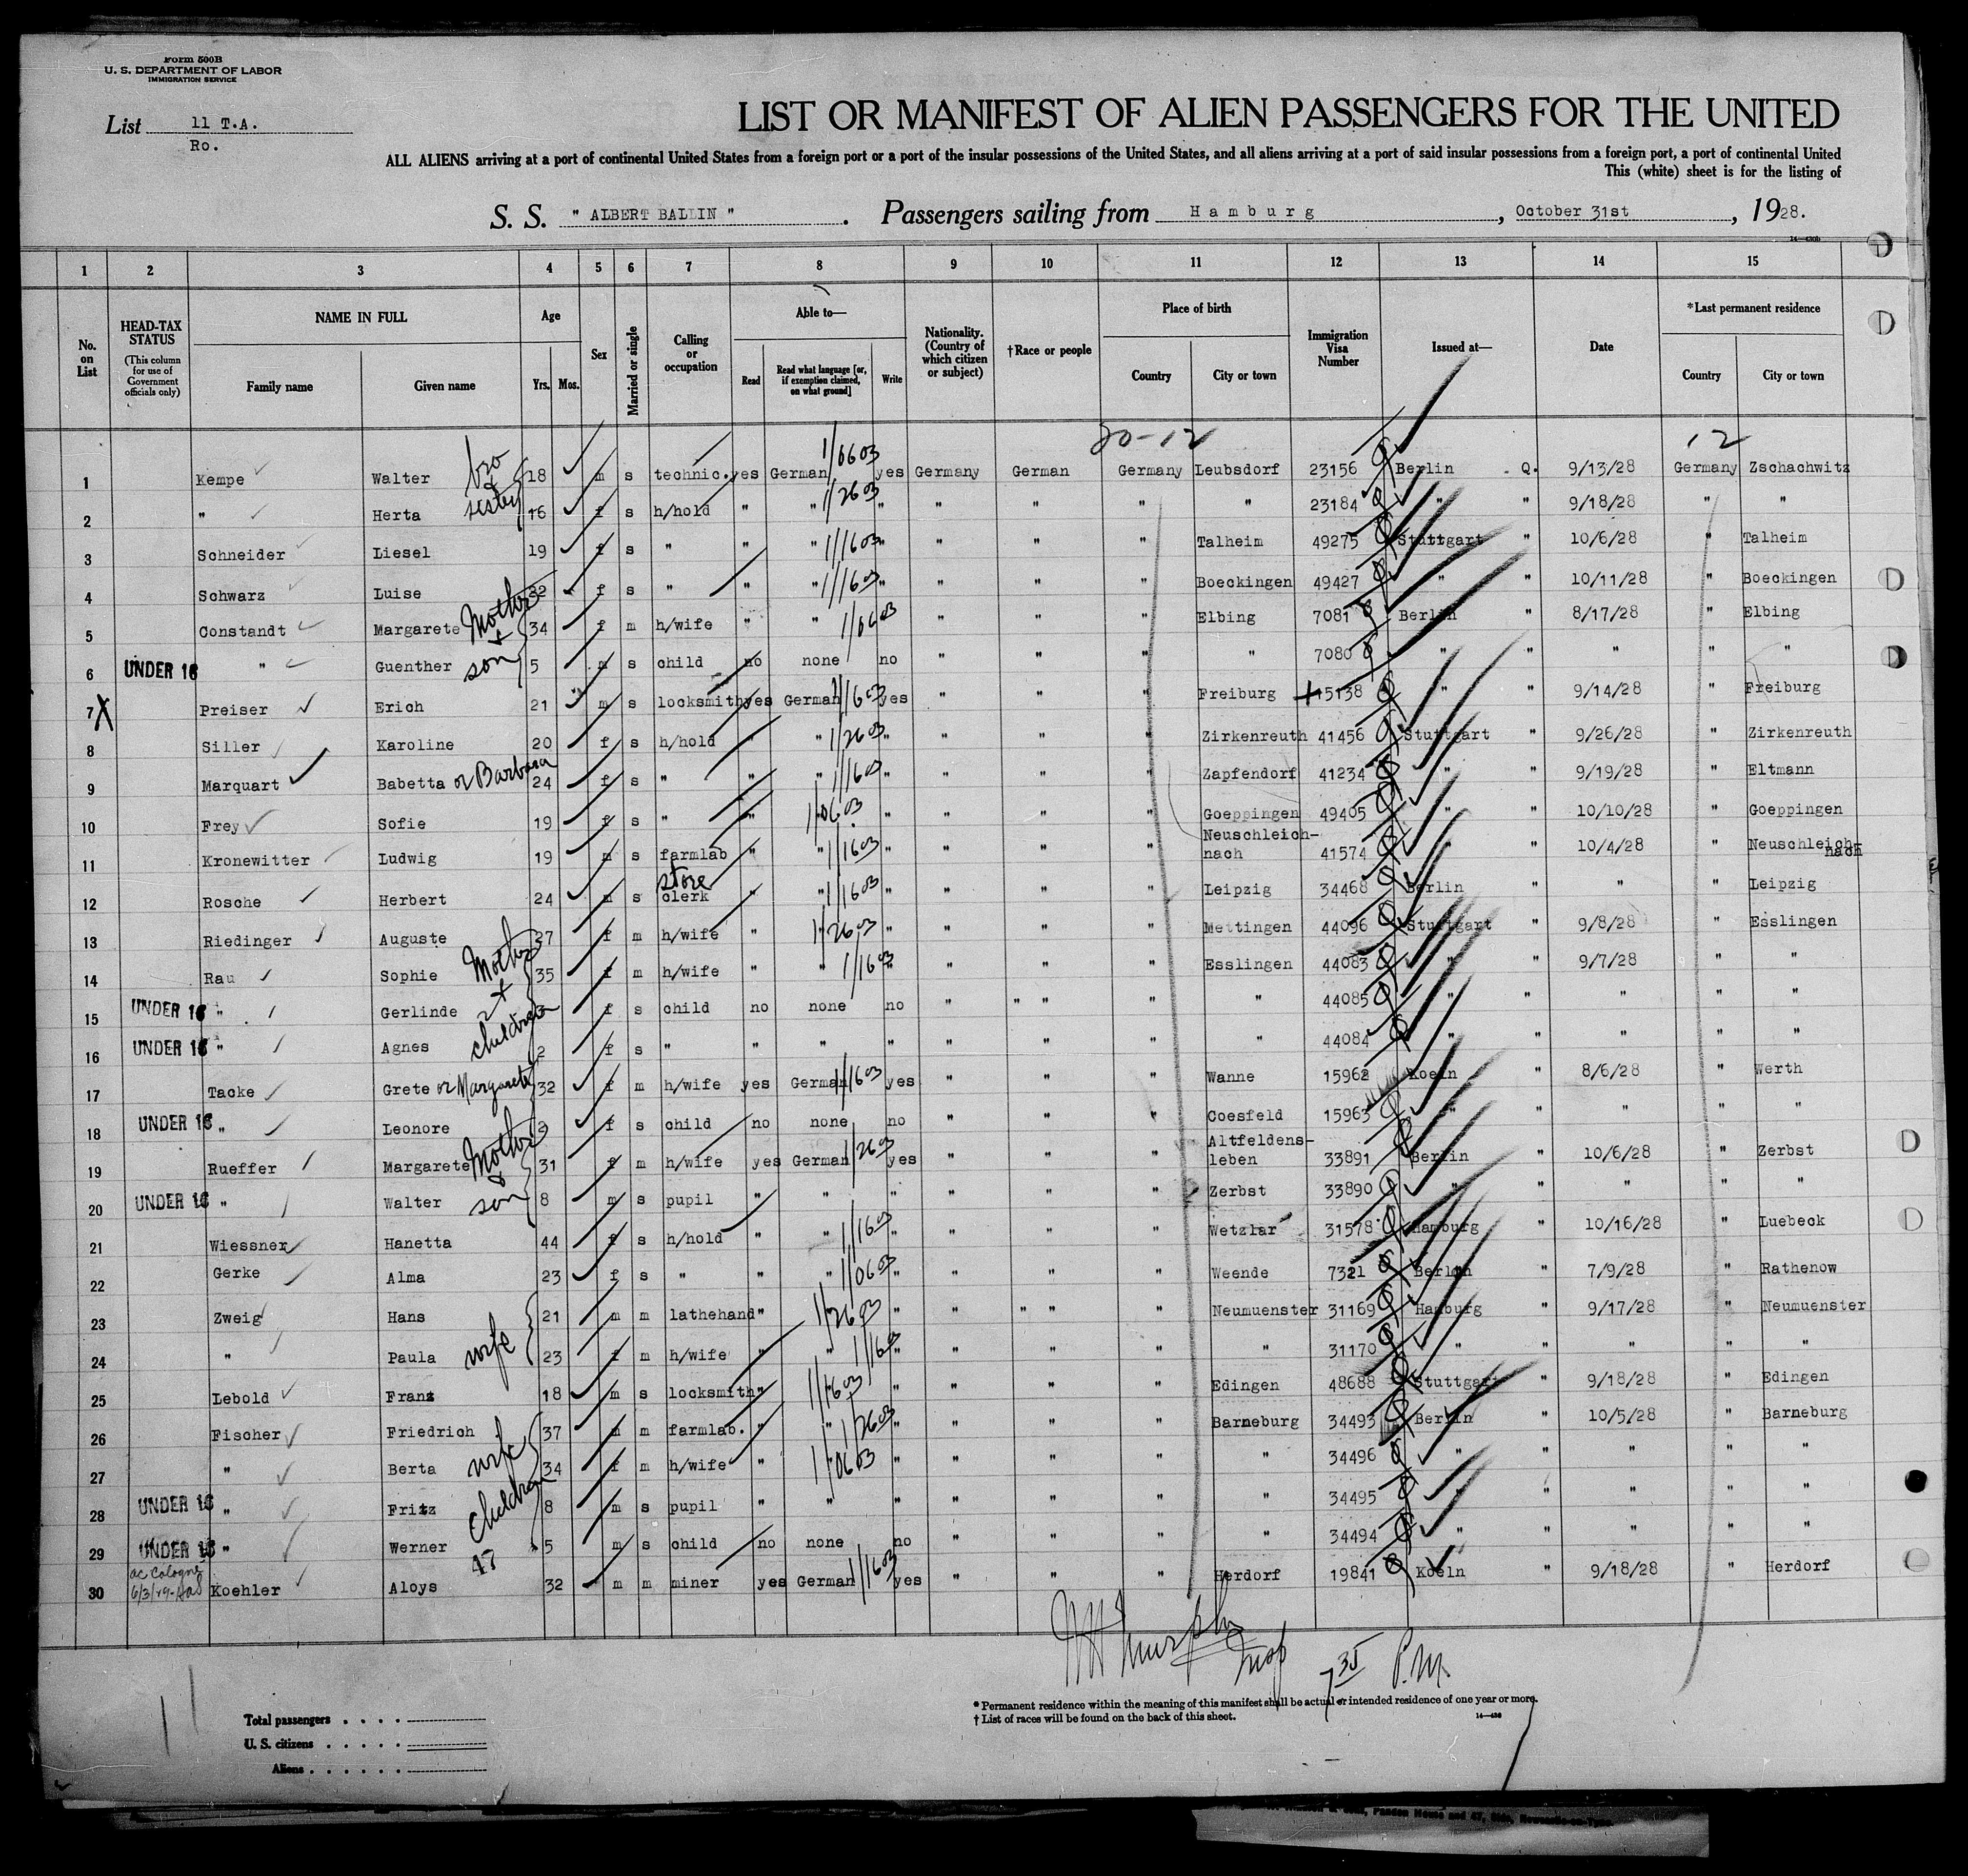 Form 500B
U. S. DEPARTMENT OF LABOR
IMMIGRATION SERVICE
List 11 T.A.
Ro.
LIST OR MANIFEST OF ALIEN PASSENGERS FOR THE UNITED
ALL ALIENS arriving at a port of continental United States from a foreign port or a port of the insular possessions of the United States, and all aliens arriving at a port of said insular possessions from a foreign port, a port of continental United
This (white) sheet is for the listing of
S. S. " ALBERT BALLIN " . Passengers sailing from Hamburg , October 31st , 1928.
1 2 3 4 5 6 7 8 9 10 11 12 13 14 15
No. on List
HEAD-TAX STATUS (This column for use of Government officials only)
NAME IN FULL Family name Given name
Age Yrs. Mos.
Sex
Married or single
Calling or occupation
Able to— Read Read what language [or, if exemption claimed, on what ground] Write
Nationality. (Country of which citizen or subject)
†Race or people
Place of birth Country City or town
Immigration Visa Number
Issued at—
Date
*Last permanent residence Country City or town
20-12 12
1 Kempe Walter bro 18 m s technic. yes German 1/0603 yes Germany German Germany Leubsdorf 23156 Berlin Q. 9/13/28 Germany Zschachwitz
2 " Herta + sister 16 f s h/hold " " 1/2603 " " " " " 23184 " " 9/18/28 " "
3 Schneider Liesel 19 f s " " " 1/1603 " " " " Talheim 49275 Stuttgart " 10/6/28 " Talheim
4 Schwarz Luise 22 f s " " " 1/1603 " " " " Boeckingen 49427 " " 10/11/28 " Boeckingen
5 Constandt Margarete Mother + 34 f m h/wife " " 1/0603 " " " Elbing 7081 Berlin " 8/17/28 " Elbing
6 UNDER 16 " Guenther son 5 m s child no none no " " " " 7080 " " " " "
7 X Preiser Erich 21 m s locksmith yes German 1/1603 yes " " " Freiburg 15138 " " 9/14/28 " Freiburg
8 Siller Karoline 20 f s h/hold " " 1/2603 " " " " Zirkenreuth 41456 Stuttgart " 9/26/28 " Zirkenreuth
9 Marquart Babetta or Barbara 24 f s " " " 1/1603 " " " " Zapfendorf 41234 " " 9/19/28 " Eltmann
10 Frey Sofie 19 f s " " 1/0603 " " " " Goeppingen 49405 " " 10/10/28 " Goeppingen
11 Kronewitter Ludwig 19 m s farmlab " " 1/1603 " " " " Neuschleich-nach 41574 " " 10/4/28 " Neuschleich-nach
12 Rosche Herbert 24 m s store clerk " " 1/1603 " " " " Leipzig 34468 Berlin " " " Leipzig
13 Riedinger Auguste 27 f m h/wife " " 1/2603 " " " " Mettingen 44096 Stuttgart " 9/8/28 " Esslingen
14 Rau Sophie Mother + 35 f m h/wife " " 1/1603 " " " " Esslingen 44083 " " 9/7/28 " "
15 UNDER 16 " Gerlinde 2 3 f s child no none no " " " " " 44085 " " " " "
16 UNDER 16 " Agnes children 2 f s " " " " " " " " 44084 " " " " "
17 Tacke Grete or Margarete 32 f m h/wife yes German 1/1603 yes " " " Wanne 15962 Koeln " 8/6/28 " Werth
18 UNDER 16 " Leonore f s child no none no " " " Coesfeld 15963 " " " " "
19 Rueffer Margarete Mother & 31 f m h/wife yes German 1/2603 yes " " " Altfeldens-leben 33891 Berlin " 10/6/28 " Zerbst
20 UNDER 16 " Walter son 8 m s pupil " " " " " " Zerbst 33890 " " " " "
21 Wiessner Hanetta 44 f s h/hold " " 1/1603 " " " " Wetzlar 31578 Hamburg " 10/16/28 " Luebeck
22 Gerke Alma 23 f s " " " 1/0603 " " " " Weende 7321 Berlin " 7/9/28 " Rathenow
23 Zweig Hans 21 m m lathehand " 1/2603 " " " " " Neumuenster 31169 Hamburg " 9/17/28 " Neumuenster
24 " Paula wife 23 f m h/wife " " 1/1603 " " " " " 31170 " " " " "
25 Lebold Franz 18 m s locksmith " 1/1603 " " " " Edingen 48688 Stuttgart " 9/18/28 " Edingen
26 Fischer Friedrich 37 m m farmlab. " " 1/2603 " " " " Barneburg 34493 Berlin " 10/5/28 " Barneburg
27 " Berta wife 34 f m h/wife " 1/0603 " " " " " 34496 " " " " "
28 UNDER 16 " Fritz 8 m s pupil " " " " " " " 34495 " " " " "
29 UNDER 16 " Werner children 5 m s child no none no " " " " 34494 " " " " "
47
30 ac Cologne 6/3/29 Koehler Aloys 32 m m miner yes German 1/1603 yes " " " Herdorf 19841 Koeln " 9/18/28 " Herdorf
Murphy Insp 7 35 P.M.
* Permanent residence within the meaning of this manifest shall be actual or intended residence of one year or more.
† List of races will be found on the back of this sheet.
Total passengers . . . .
U. S. citizens . . . . .
Aliens . . . . . .